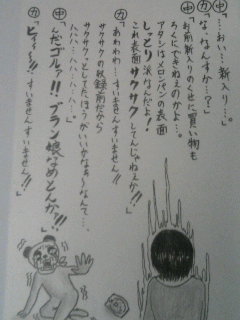 ㊥「…おい、新入り…。」
㋕「な、なんすか…？」
㊥「お前新入りのくせに買い物も
ろくにできねぇのかよ…。
アタシはメロンパンの表面
しっとり派なんだよ！
これ表面サクサクしてんじゃねぇか!!」
㋕「あわわわ…すいませんすいません!!
サクサクの収録前だから
サクサクっとしてたほうがいいかなぁ〜なんて…、
ハハ…ハハ…ハハ…。」
㊥「んだゴルァ!!ブラン娘なめとんか!!!」
㋕「ヒィィィ!!!すいませんすいません!!!」